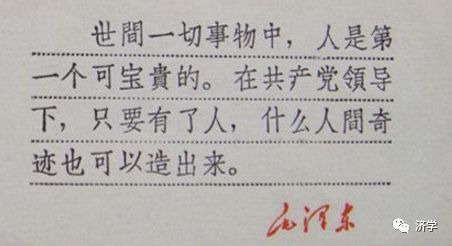 世間一切事物中，人是第
一个可宝貴的。在共产党領导
下，只要有了人，什么人間奇
迹也可以造出来。
毛泽东
济学